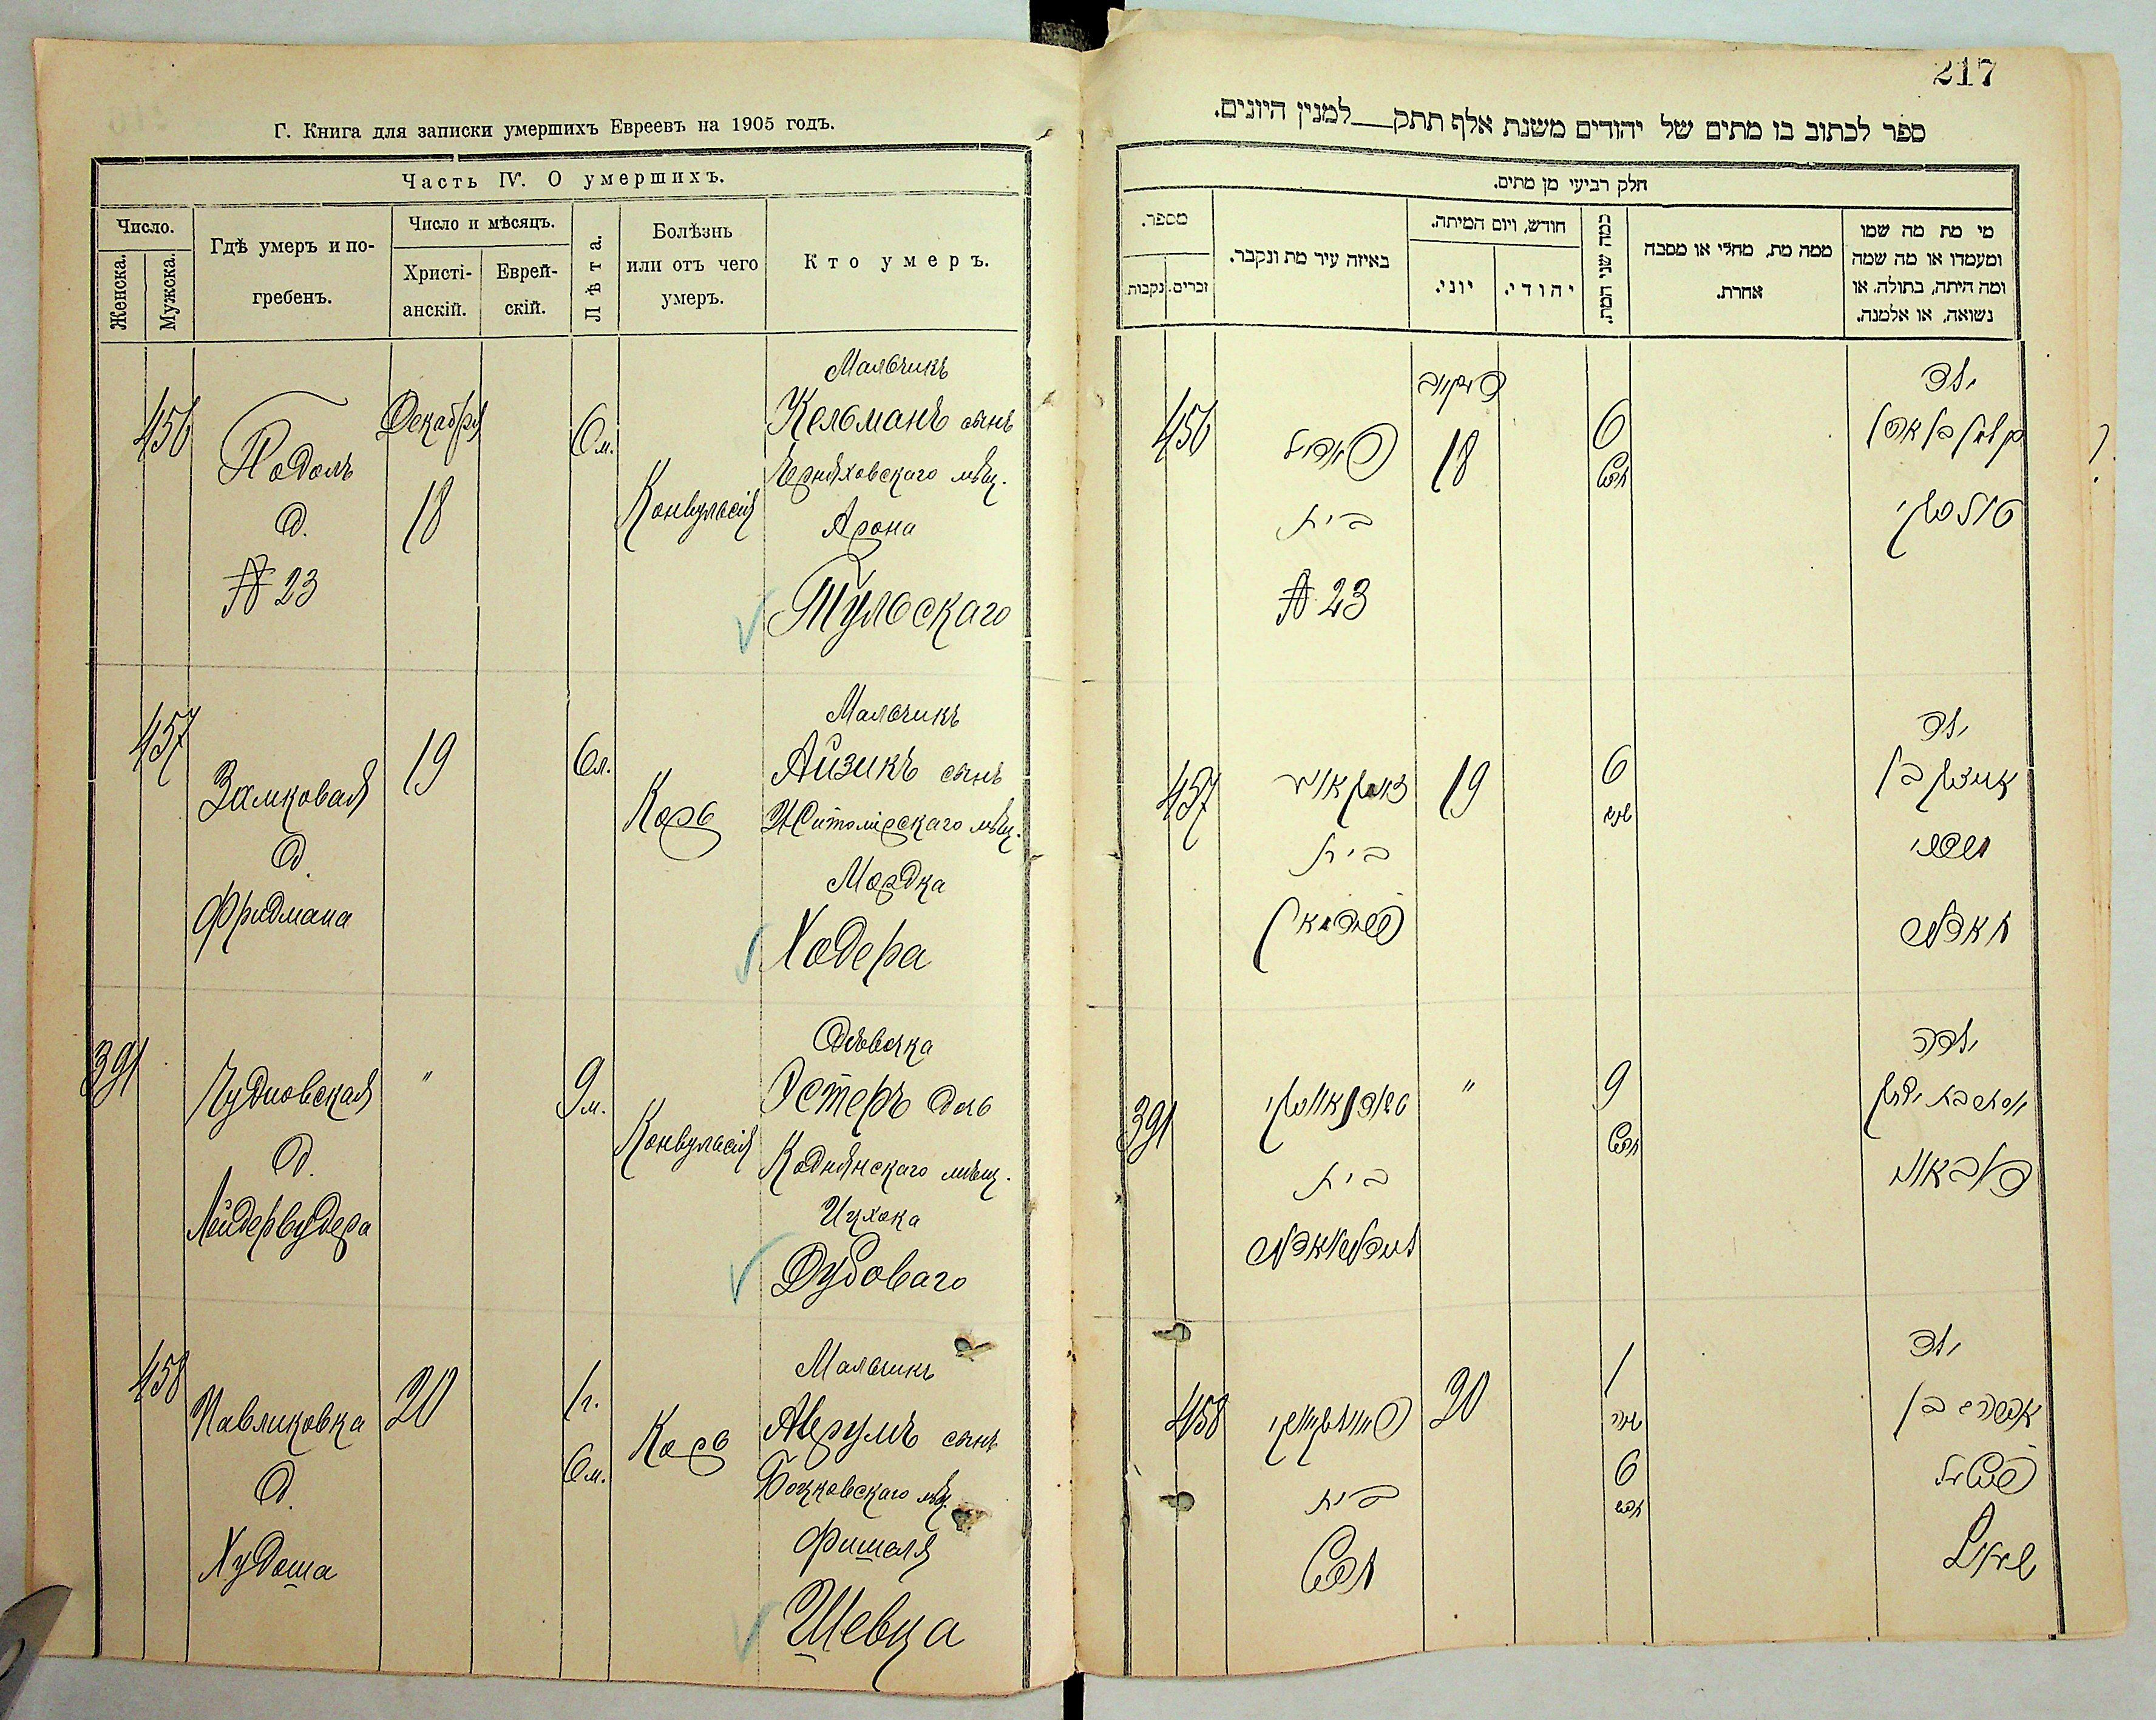 Г. Книга для записки умершихъ Евреевъ на 1905 годъ.
Часть IV. О умершихъ.
Число.
Женска.
Мужска.
Гдѣ умеръ и по-
гребенъ.
Число и мѣсяцъ.
Христі-
анскій.
Еврей-
скій.
Лѣта.
Болѣзнь
или отъ чего
умеръ.
Кто умеръ.
456
Подолъ
д.
№ 23
Декабря
18
6 м.
Конвульсія
Мальчикъ
Кельманъ сынъ
Черняховскаго мѣщ.
Арона
Тульскаго
457
Замковая
д.
Фридмана
19
6 л.
Корь
Мальчикъ
Айзикъ сынъ
Житомірскаго мѣщ.
Мордка
Ходера
391
Чудновская
д.
Лейдервудера
"
9 м.
Конвульсія
Дѣвочка
Эстеръ дочь
Коднянскаго мѣщ.
Ицхока
Дубоваго
458
Павликовка
д.
Худоша
20
1 г.
6 м.
Корь
Мальчикъ
Аврумъ сынъ
мѣщ.
Фишеля
Шевца
217
ספר לכתוב בו מתים של יהודים משנת אלף תתק__למנין היונים.
חלק רביעי מן מתים.
מספר.
זכרים.
נקבות.
באיזה עיר מת ונקבר.
חודש, ויום המיתה.
יוני.
יהודי.
כמה שני המת.
ממה מת, מחלי או מסבה
אחרת.
מי מת מה שמו
ומעמדו או מה שמה
ומה היתה, בתולה, או
נשואה, או אלמנה.
456
פאדאל
בית
№ 23
דעקאבר
18
6
חדש
ילד
קלמן בן אהרן
טולסקי
457
זאמקאווע
בית
פרידמאן
19
6
שנים
ילד
אייזיק בן
מרדכי
חאדער
391
טשודנאווסקי
בית
"
9
חדש
ילדה
אסתר בת יצחק
דובאווי
458
פאוולקווקי
בית
חדש
20
1
שנה
6
חדש
ילד
אברהם בן
פישל
שוועץ